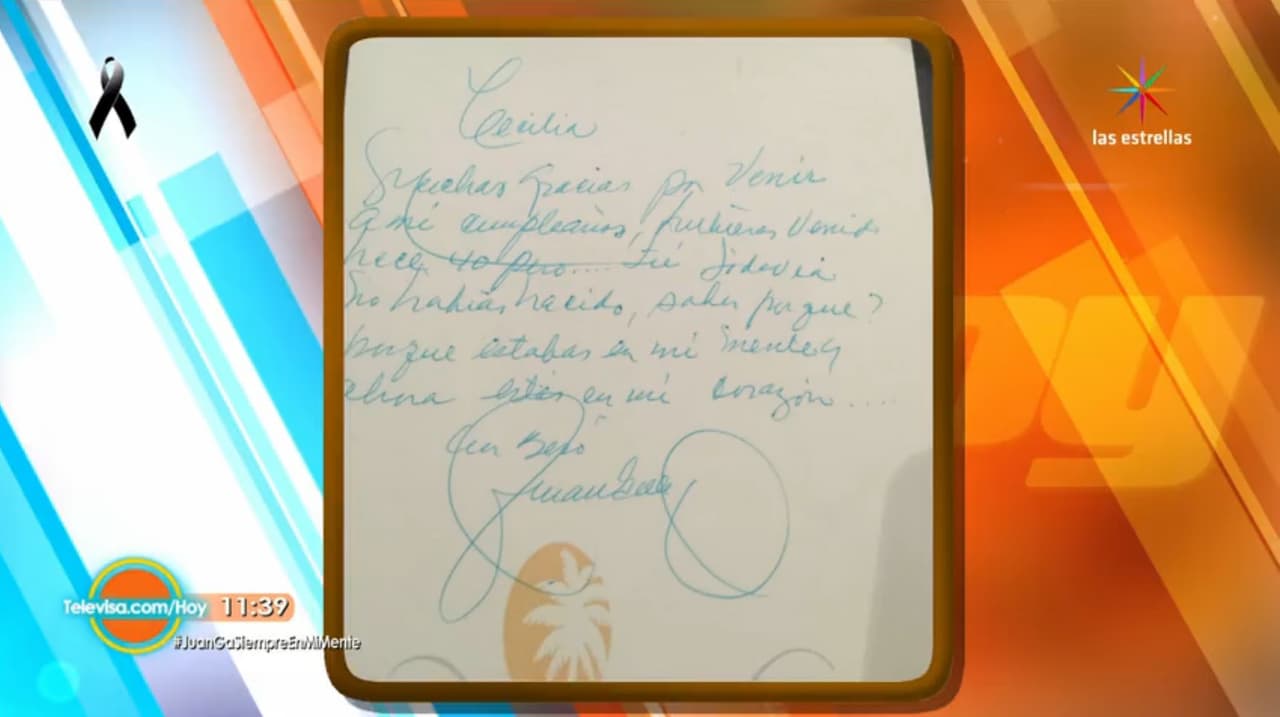 las estrellas
Cecilia
Muchas Gracias por Venir
a mi cumpleaños, hubieras Venido
hace 40 pero.... Tú Todavia
No habias nacido, sabes porque?
porque estabas en mi mente y
ahora estás en mi corazón....
Un Beso
Juan Gabriel
Televisa.com/Hoy 11:39
#JuanGaSiempreEnMiMente
oy